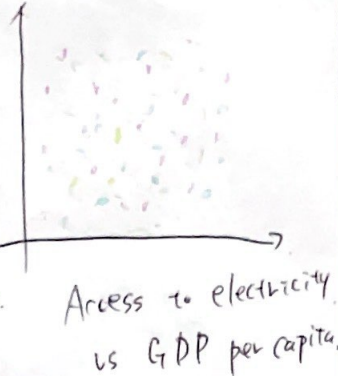 Access to electricity
vs GDP per capita.